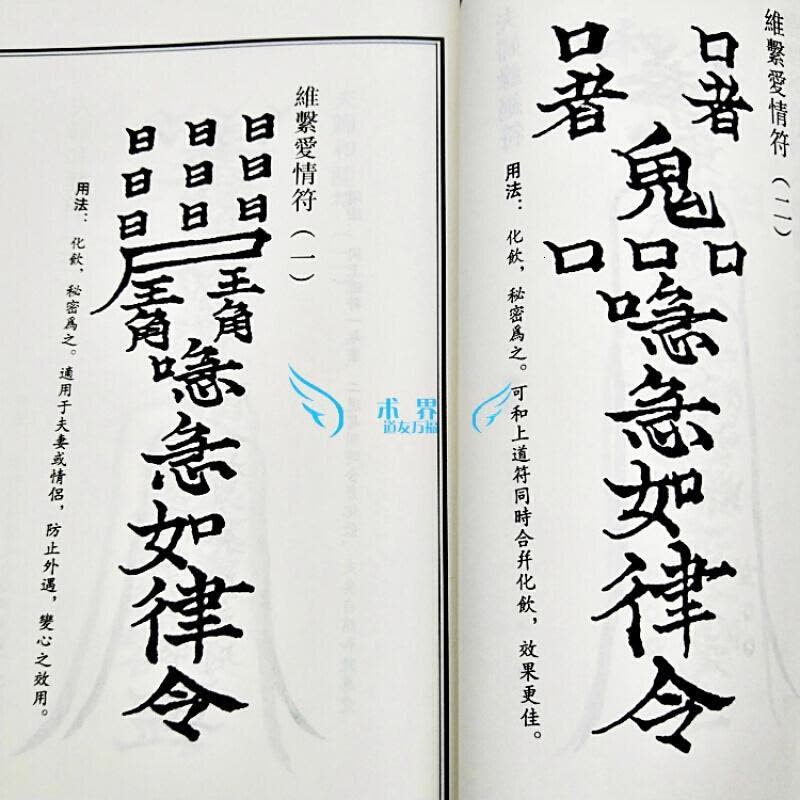 維繫愛情符（一）
日日日
日日日
日日日
王王
角角
喼
急
如
律
令
用法：化飲，秘密為之。適用于夫妻或情侶，防止外遇，變心之效用。
維繫愛情符（二）
口口
者者
鬼
口口口
喼
急
如
律
令
用法：化飲，秘密為之。可和上道符同時合幷化飲，效果更佳。
术界
道友万